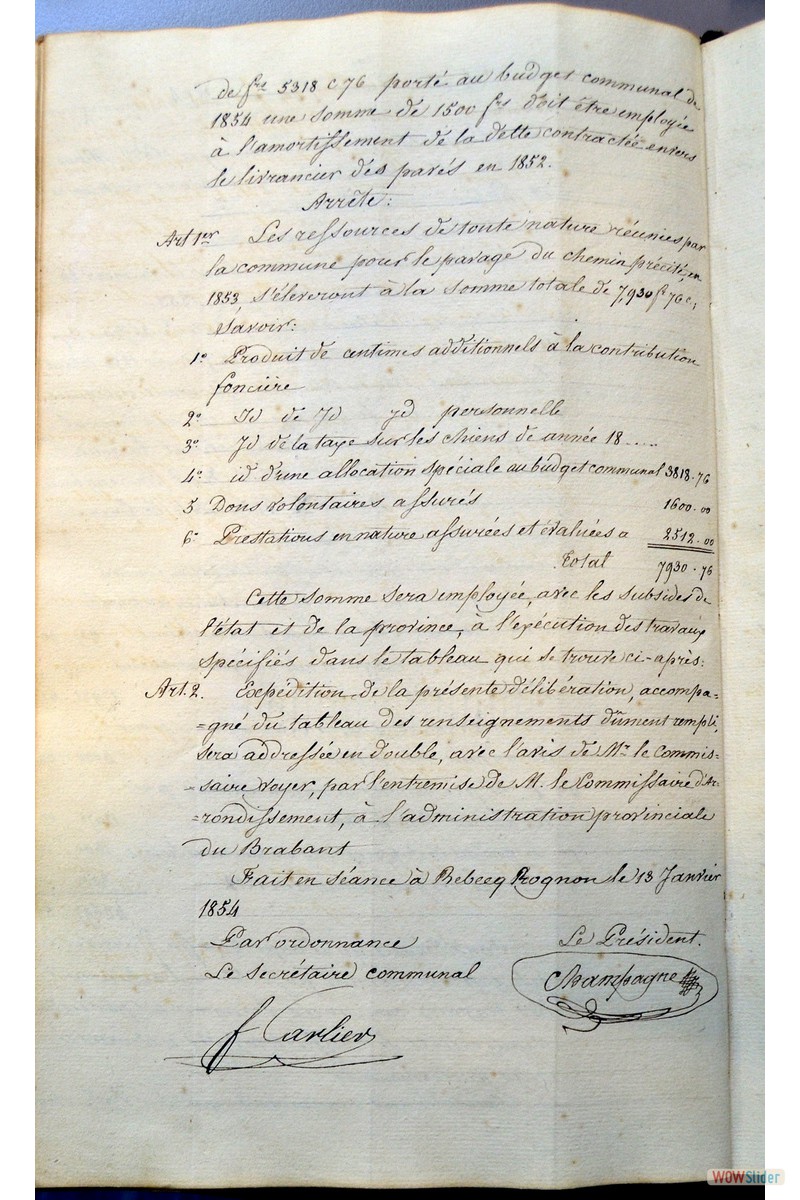 de frs 5318 c 76 porté au budget communal de
1854 une somme de 1500 frs doit être employée
à l'amortissement de la dette contractée envers
le livrancier des pavés en 1852.
Arrête:
Art 1er Les ressources de toute nature réunies par
la commune pour le pavage du chemin précité, en
1853 s'éleveront à la somme totale de 7,930 f 76 c,
savoir:
1° Produit de centimes additionnels à la contribution
foncière
2° Id de Id yd personnelle
3° Id de la taxe sur les chiens de année 18.....
4° id d'une allocation spéciale au budget communal 3818-76
5 Dons volontaires assurés 1600-00
6° Prestations en nature assurées et évaluées a 2512-00
Total 7930-76
Cette somme sera employée, avec les subsides de
l'état et de la province, à l'exécution des travaux
spécifiés dans le tableau qui se trouve ci-après:
Art. 2. Expédition de la présente délibération, accompa=
=gné du tableau des renseignements dûment rempli,
sera addressée en double, avec l'avis de Mr le Commis=
=saire voyer, par l'entremise de M. le Commissaire d'Ar=
=rondissement, à l'administration provinciale
du Brabant
Fait en séance à Rebecq Rognon le 13 Janvier
1854
Par ordonnance Le Président.
Le secrétaire communal Champagne
f Carlier
WOWSlider